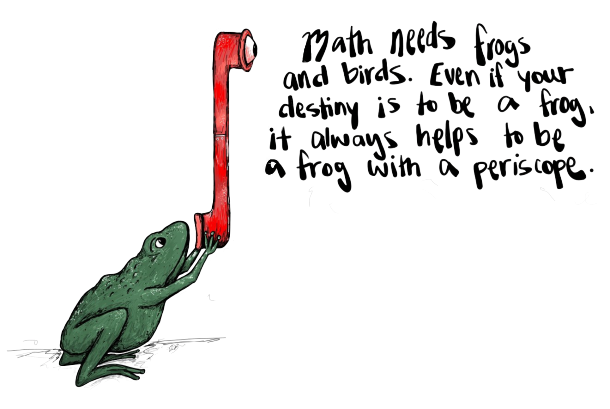 Math needs frogs
and birds. Even if your
destiny is to be a frog,
it always helps to be
a frog with a periscope.